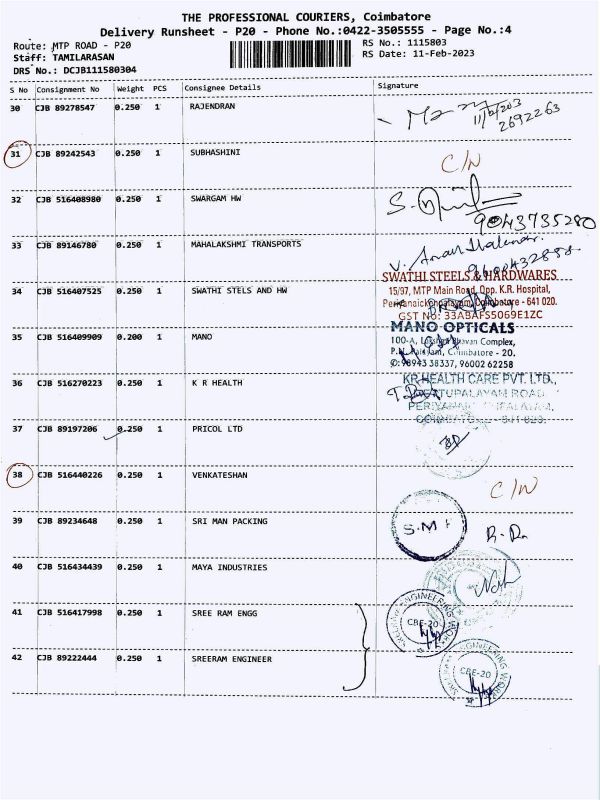 THE PROFESSIONAL COURIERS, Coimbatore
Delivery Runsheet - P20 - Phone No.:0422-3505555 - Page No.:4
Route: MTP ROAD - P20
RS No.: 1115803
Staff: TAMILARASAN
RS Date: 11-Feb-2023
DRS No.: DCJB111580304
S No Consignment No Weight PCS Consignee Details Signature
30 CJB 89278547 0.250 1 RAJENDRAN
2692263
31 CJB 89242543 0.250 1 SUBHASHINI C/N
32 CJB 516408980 0.250 1 SWARGAM HW
9043735280
33 CJB 89146780 0.250 1 MAHALAKSHMI TRANSPORTS
SWATHI STEELS & HARDWARES
34 CJB 516407525 0.250 1 SWATHI STELS AND HW
15/97, MTP Main Road, Opp. K.R. Hospital,
Coimbatore - 641 020.
GST No: 33ABAFS5069E1ZC
MANO OPTICALS
35 CJB 516409909 0.200 1 MANO
100-A, Bhavan Complex,
Coimbatore - 20.
98943 38337, 96002 62258
36 CJB 516270223 0.250 1 K R HEALTH
KR HEALTH CARE PVT. LTD.,
ROAD,
37 CJB 89197206 0.250 1 PRICOL LTD
38 CJB 516440226 0.250 1 VENKATESHAN C/N
39 CJB 89234648 0.250 1 SRI MAN PACKING
S.M.F
40 CJB 516434439 0.250 1 MAYA INDUSTRIES
41 CJB 516417998 0.250 1 SREE RAM ENGG
CBE-20
42 CJB 89222444 0.250 1 SREERAM ENGINEER
CBE-20